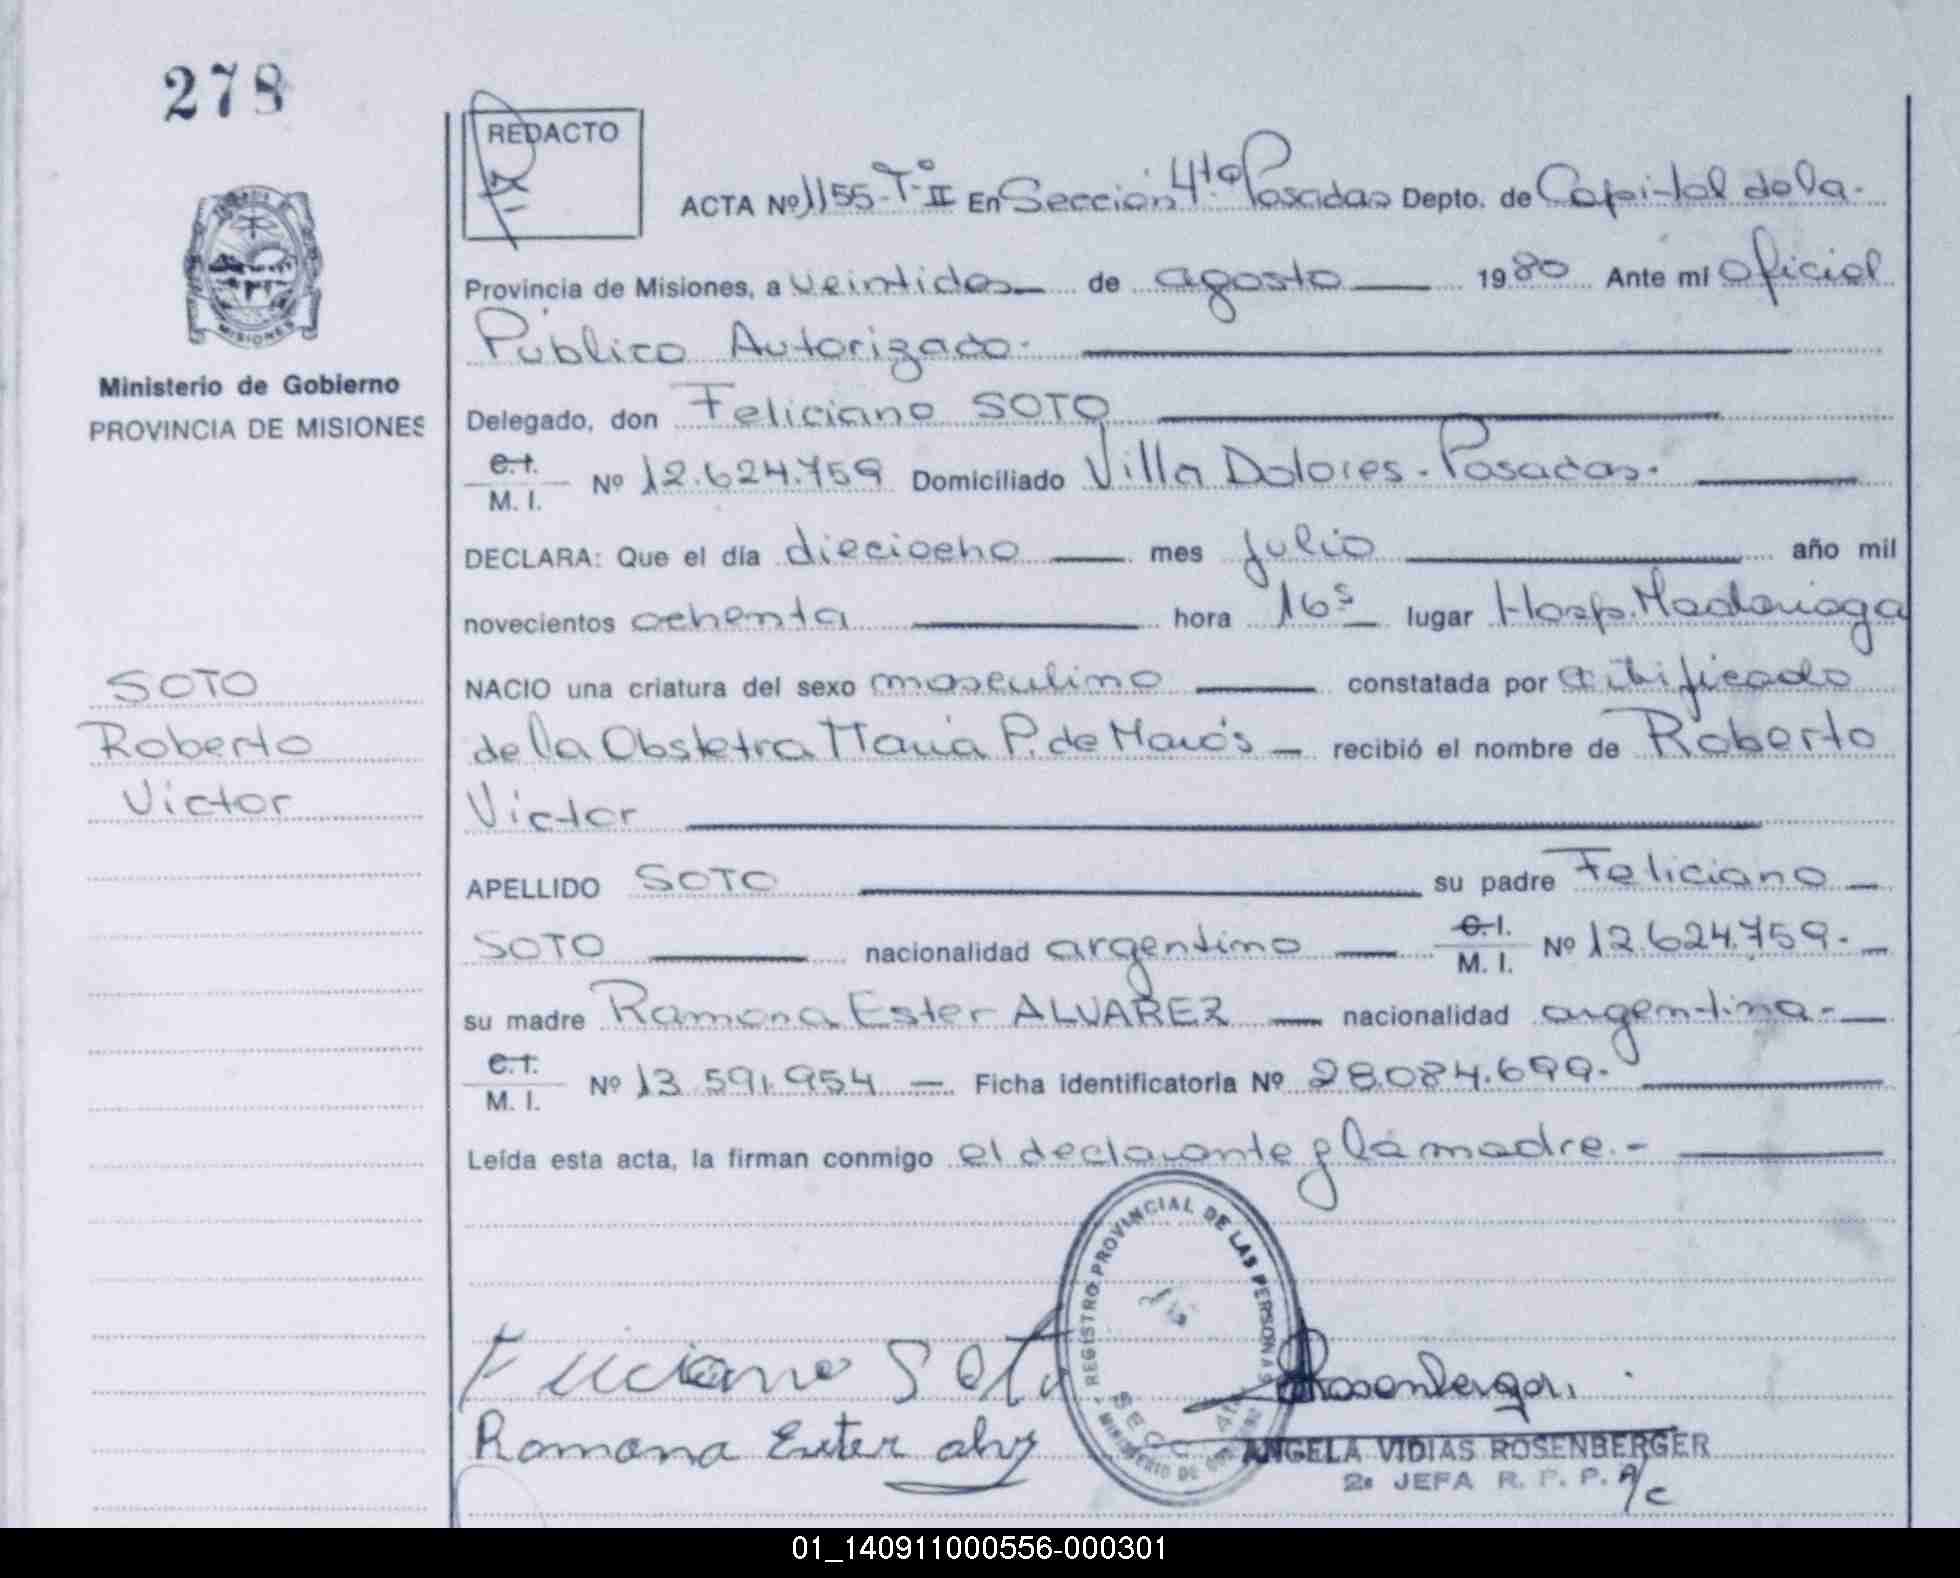 278
REDACTO
ACTA Nº 1155-Tº II En Sección 4ta Posadas Depto. de Capital de la
Provincia de Misiones, a veintidos de agosto 1980 Ante mi Oficial
Público Autorizado.
MISIONES
Ministerio de Gobierno
PROVINCIA DE MISIONES
Delegado, don Feliciano SOTO
C.I.
M. I. Nº 12.624.759 Domiciliado Villa Dolores - Posadas.
DECLARA: Que el día dieciocho mes julio año mil
novecientos ochenta hora 16s lugar Hosp. Madariaga
SOTO
Roberto
Victor
NACIO una criatura del sexo masculino constatada por
de la Obstetra María P. de recibió el nombre de Roberto
Victor
APELLIDO SOTO su padre Feliciano
SOTO nacionalidad argentino C.I. M. I. Nº 12.624.759.
su madre Ramona Ester ALVAREZ nacionalidad argentina.
C.I.
M. I. Nº 13.591.954 Ficha identificatoria Nº 28.084.699.
Leída esta acta, la firman conmigo el declarante y la madre.-
REGISTRO PROVINCIAL DE LAS PERSONAS
SECC. 4ta
MINISTERIO DE GOBIERNO
Feliciano Soto
Rosenberger
Ramona Ester
ANGELA VIDIAS ROSENBERGER
2ª JEFA R. P. P. A/c
01_140911000556-000301